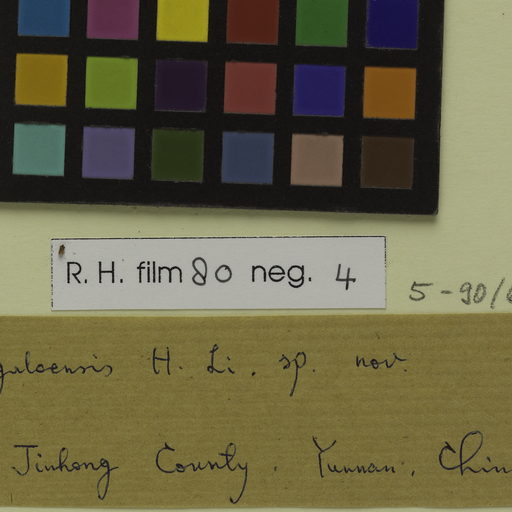 R. H. film 80 neg. 4
5-90/
H. Li, sp. nov.
Jinhong County. Yunnan. Chin